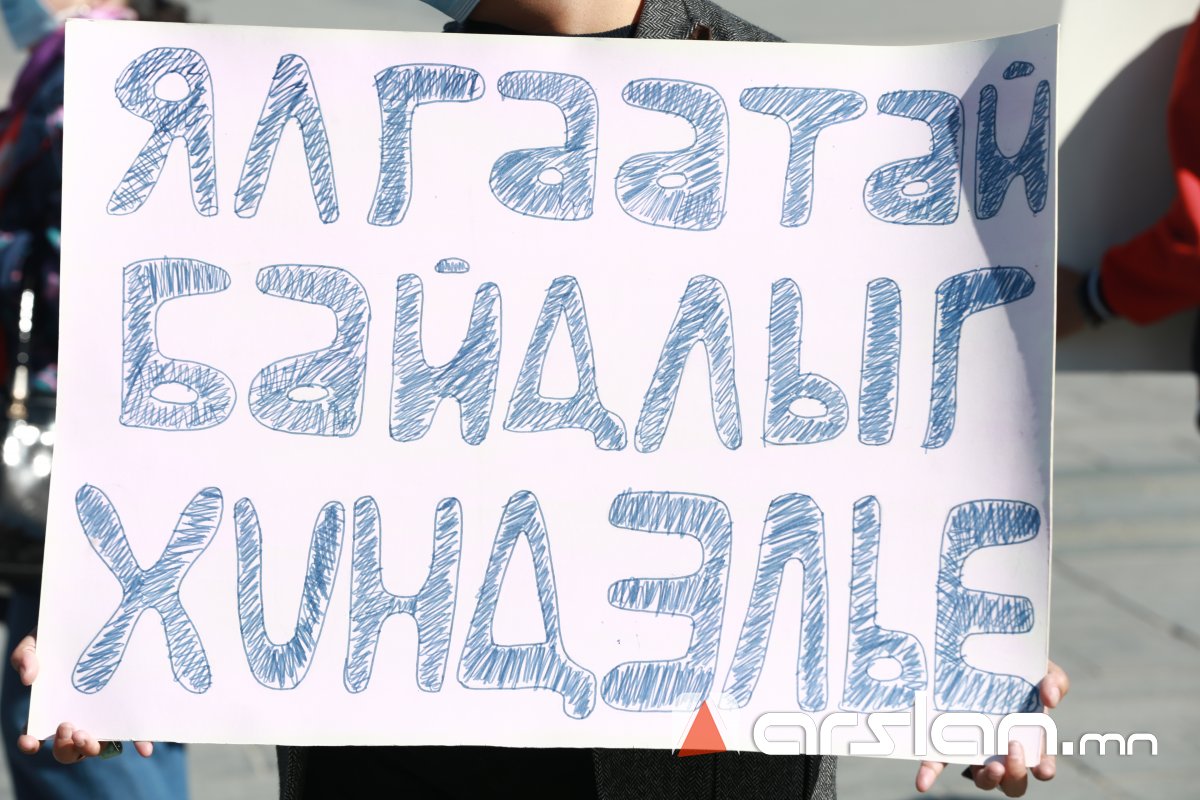 ЯЛГААТАЙ
БАЙДЛЫГ
ХҮНДЭЛЬЕ
arslan.mn